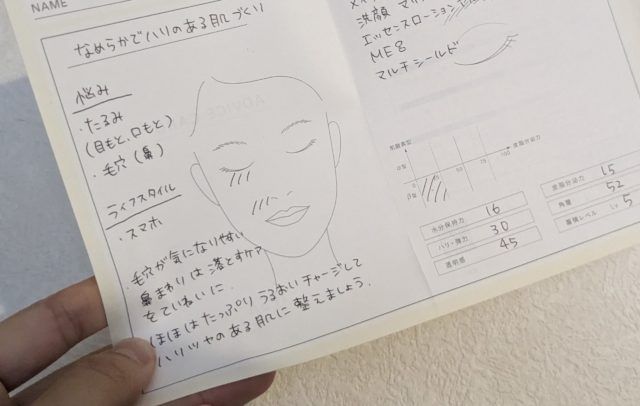 NAME
なめらかでハリのある肌づくり
悩み
・たるみ
(目もと、口もと)
・毛穴(鼻)
ライフスタイル
・スマホ
毛穴が気になりやすい
鼻まわりは落とすケア
をていねいに.
ほほはたっぷりうるおいチャージして
ハリツヤのある肌に整えましょう.
洗顔
エッセンスローション
ME8
マルチシールド
肌質典型
皮脂分泌力
0
50
75
100
水分保持力 16
ハリ・弾力 30
透明感 45
皮脂分泌力 15
角層 52
最積レベル Lv 5